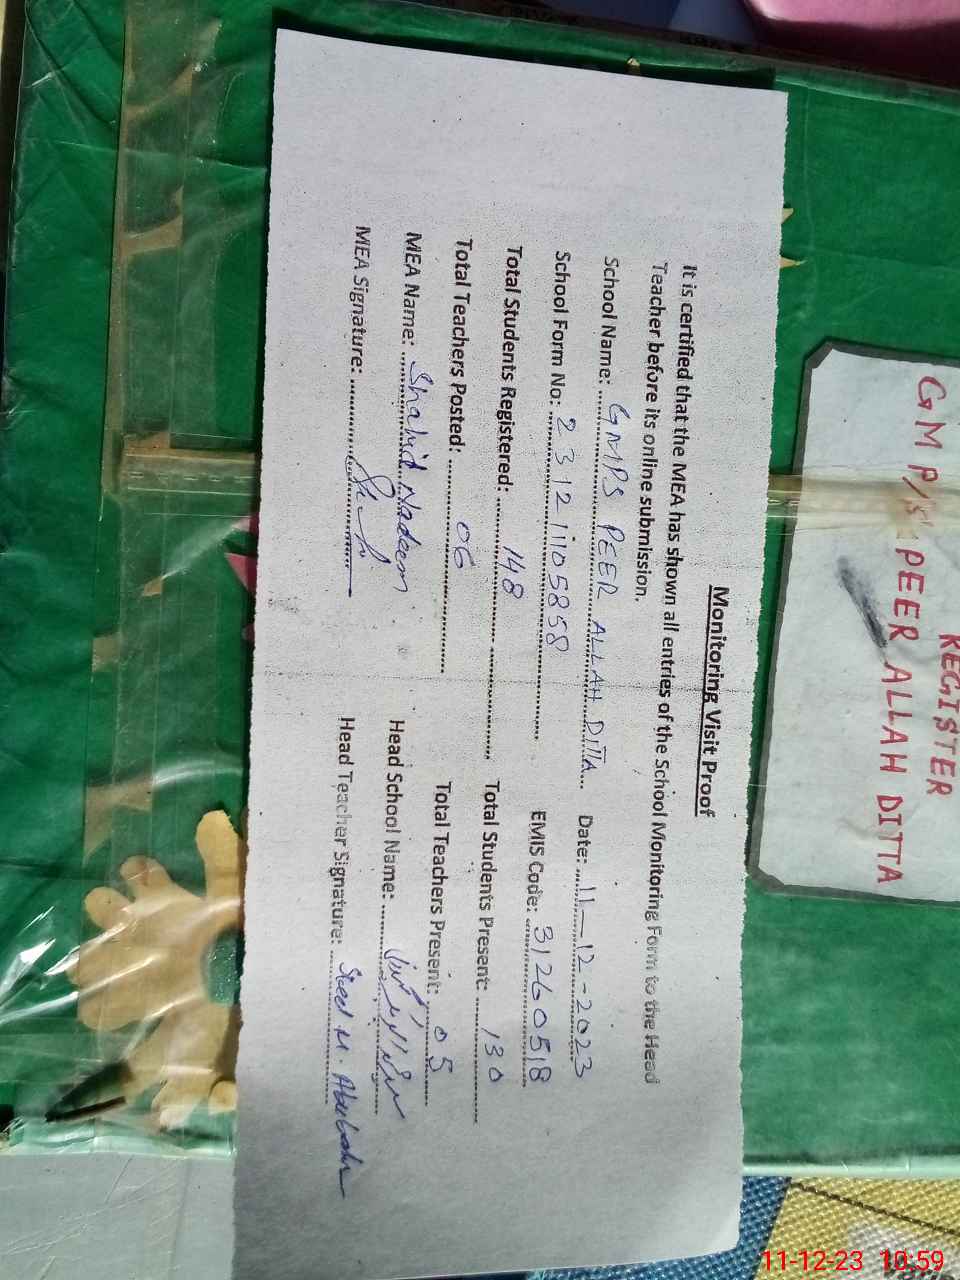 Monitoring Visit Proof
It is certified that the MEA has shown all entries of the School Monitoring Form to the Head
Teacher before its online submission.
School Name: GMPS PEER ALLAH DITTA Date: 11-12-2023
School Form No: 2312111058 58 EMIS Code: 31260518
Total Students Registered: 148 Total Students Present: 130
Total Teachers Posted: 06 Total Teachers Present: 05
MEA Name: Shahid Nadeem Head School Name:
MEA Signature: Head Teacher Signature: M. Abubakr
REGISTER
G M P/S PEER ALLAH DITTA
11-12-23 10:59